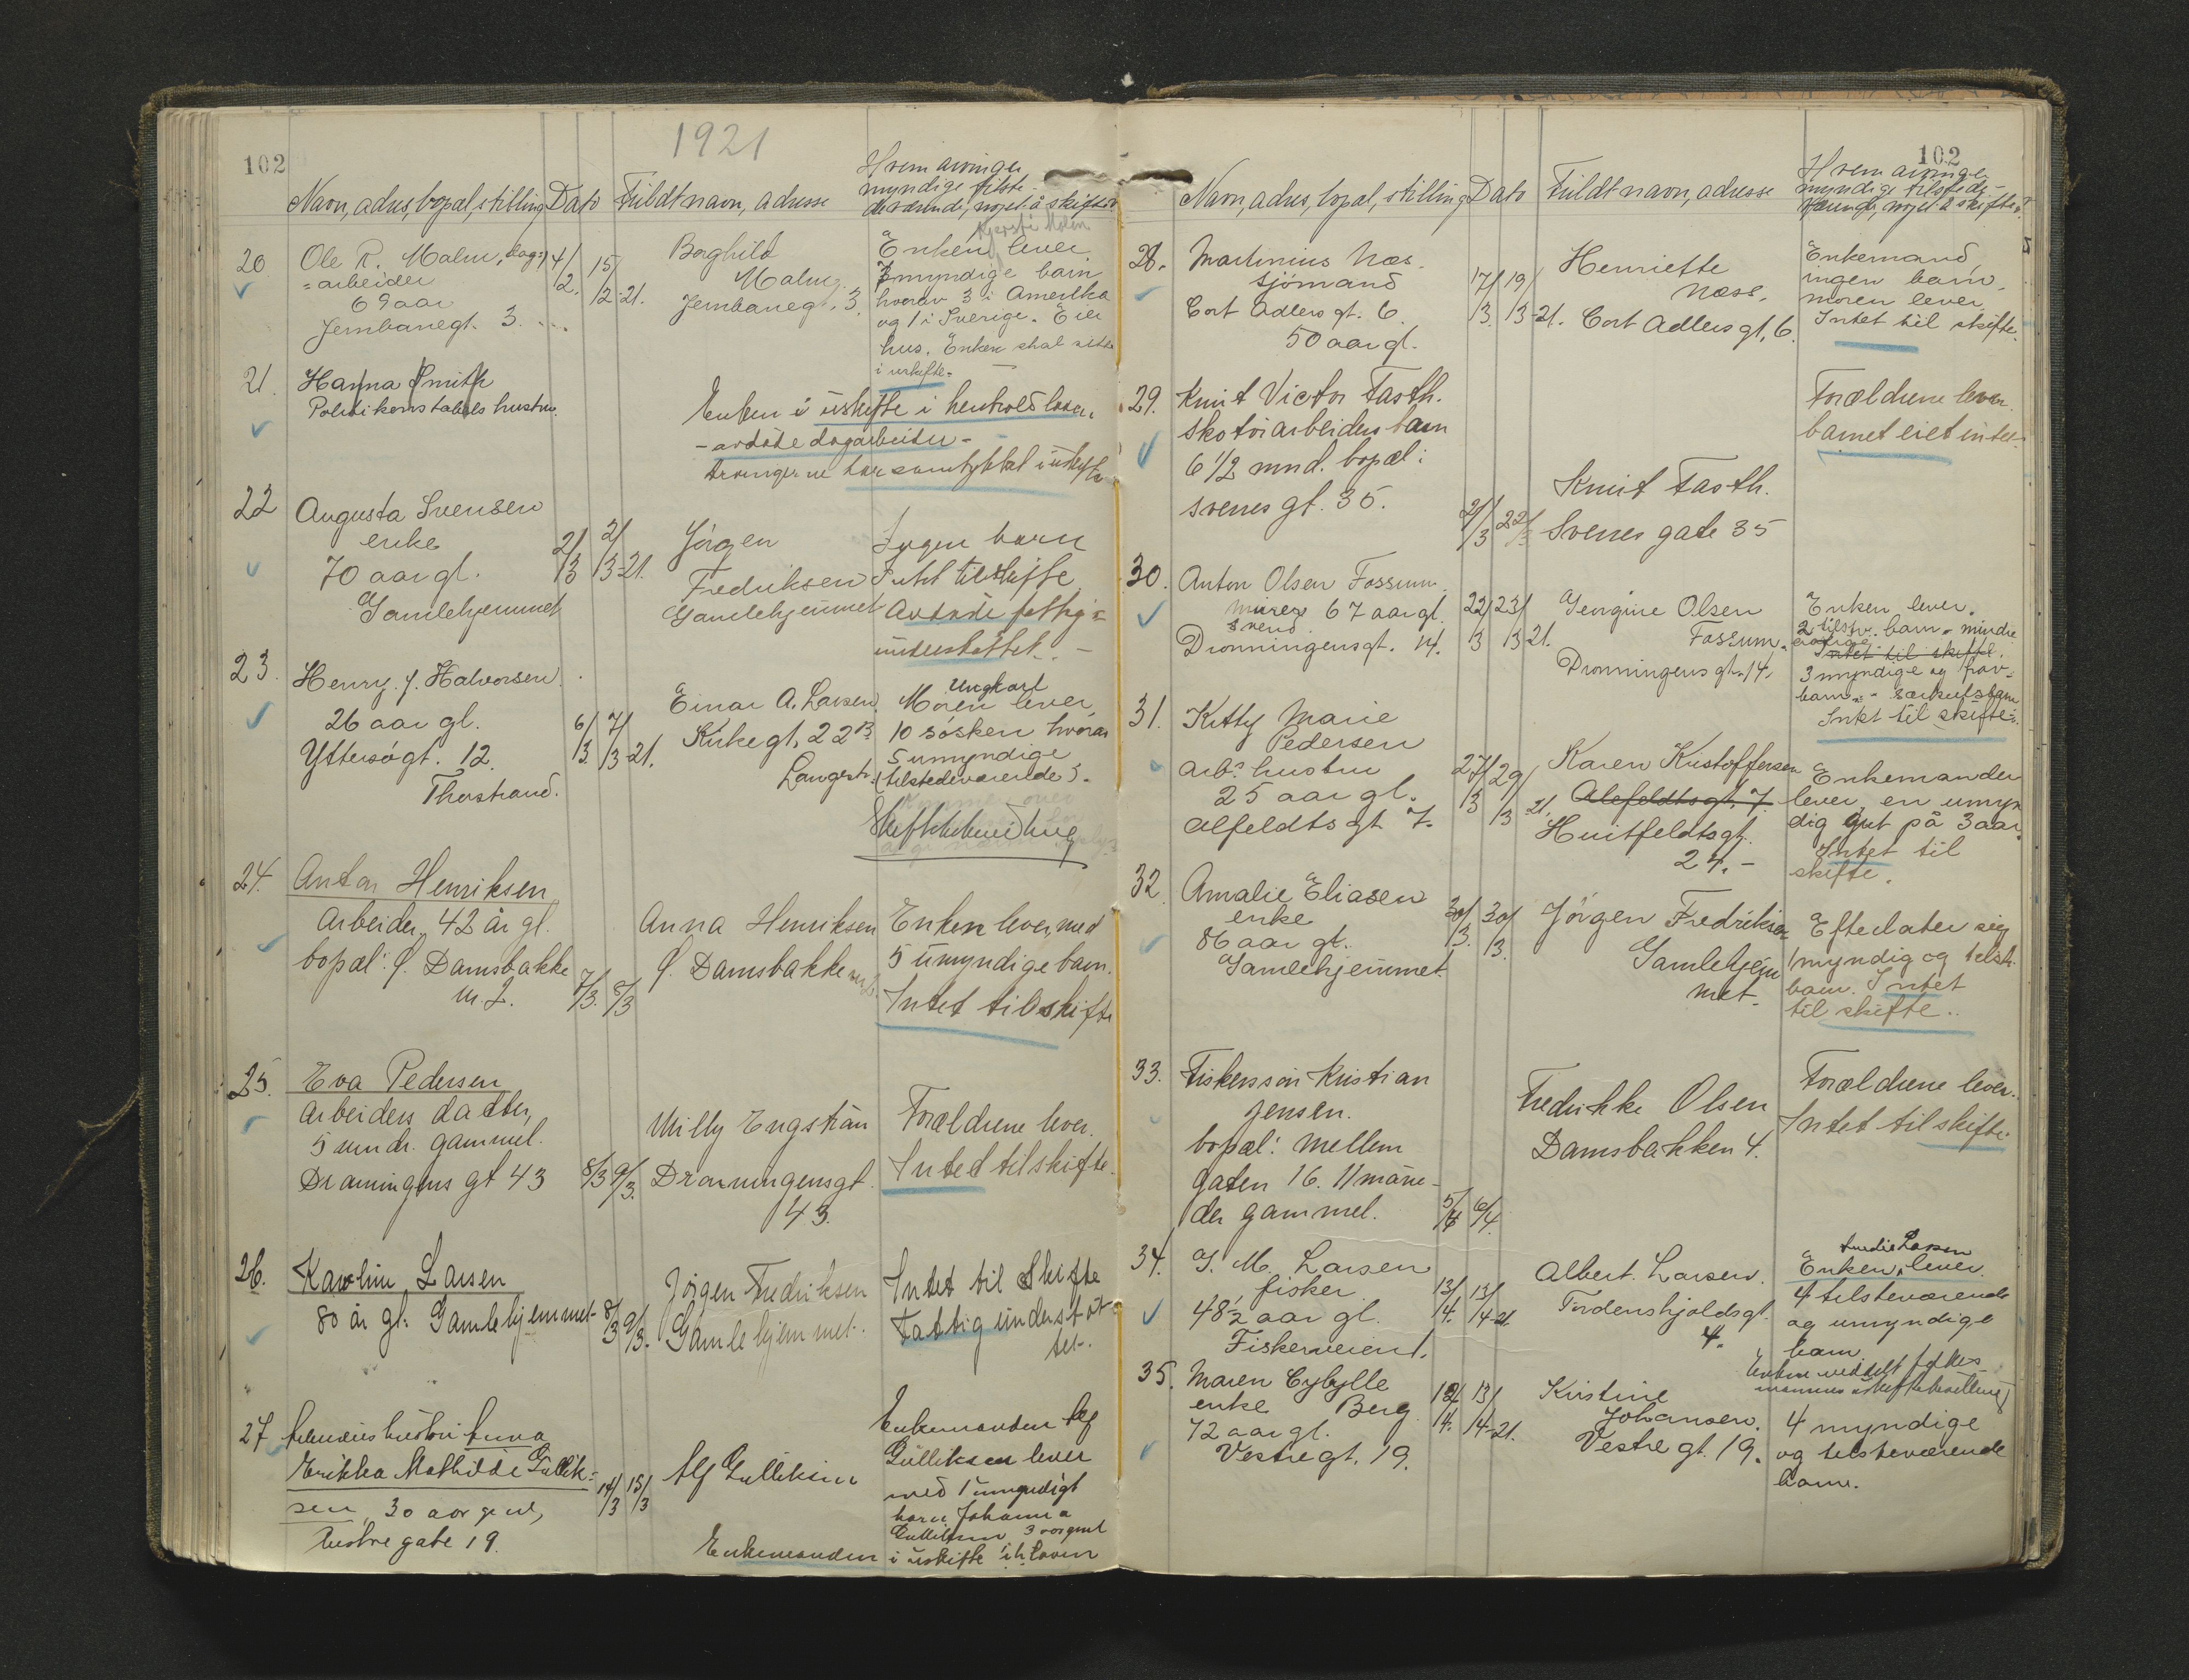 1921
102
Navn, adres, bopæl, stilling Dato Fuldt navn, adresse
Hvem arvinger
myndige tilste-
deværende, noget å skifte?
20. Ole R. Malm, dag-
=arbeider
69 aar
Jernbanegt. 3.
4/2. 15/2-21.
Borghild
Malm,
Jernbanegt. 3.
Enken lever
7 myndige barn
hvorav 3 i Amerika
og 1 i Sverige. Eier
hus. Enken skal sitte
i uskifte.
21. Hanna Smith
Politikonstabels hustru.
Enken i uskifte i henhold loven
- avdøde dagarbeider -
arvingerne har samtykket i uskifte
22 Augusta Svensen
enke
70 aar gl.
Gamlehjemmet
2/3 2/3-21.
Jörgen
Fredriksen
Gamlehjemmet
Ingen barn
Intet til skifte
Avdøde fattig-
understöttet. -
23. Henry J. Halvorsen.
26 aar gl.
Yttersögt. 12.
Thorstrand.
6/3. 7/3-21.
Einar A. Larsen
Kirkegt. 22 B
Langestr.
Ungkarl
Moren lever,
10 sösken hvorav
5 umyndige
(tilstedeværende).
24. Anton Henriksen
Arbeider, 42 år gl.
bopæl: Ö. Damsbakke
n 2.
7/3. 8/3
Anna Henriksen
Ö. Damsbakke
Enken lever, med
5 umyndige barn.
Intet til skifte
25. Eva Pedersen
Arbeiders datter,
5 mndr. gammel.
Dronningens gt 43
8/3 9/3.
Milly Engström
Dronningensgt.
43.
Forældrene lever.
Inted til skifte.
26. Karolin Larsen
80 år gl. Gamlehjemmet.
8/3 9/3.
Jörgen Fredriksen
Gamlehjemmet.
Intet til Skifte
Fattig understöt-
tet.
27 hustru Anna
Erikka Mathilde Gullik-
sen, 30 aar gml,
Vestre gate 19.
14/3 15/3
Alf Gulliksen
Enkemanden Alf
Gulliksen lever
med 1 umyndigt
barn Johanna
Gulliksen 3 aar gml
Enkemanden i uskifte i h. loven
102
Navn, adres, bopæl, stilling Dato Fuldt navn, adresse
Hvem arvinge,
myndige tilstede-
værende, noget å skifte?
28. Martinius Næs.
sjömand
Cort Adlers gt. 6.
50 aar gl.
17/3. 19/3-21.
Henriette
Næss.
Cort Adlers gt. 6.
Enkemand,
ingen barn,
moren lever,
Intet til skifte.
29. Knut Victor Fasth.
Skotöiarbeiders barn
6 1/2 mnd. bopæl:
Svenes gt. 35.
21/3 22/3
Knut Fasth.
Svenes gate 35
Forældrene lever.
barnet eiet intet.
30. Anton Olsen Fossum
murer 67 aar gl.
svend
Dronningensgt. 14.
22/3 23/3 21.
Georgine Olsen
Fossum.
Dronningens gt. 14.
Enken lever.
2 tilstv. barn - mindre
årige.
Intet til skifte.
3 myndige og frav-
barn - særkulsbarn
Intet til skifte.
31. Kitty Marie
Pedersen
arb. hustru
25 aar gl.
Alfeldts gt 7.
27/3 29/3 21.
Karen Kristoffersen
Alefeldtsgt. 7.
Huitfeldtsgt.
24. -
Enkemanden
lever, en umyn
dig gut på 3 aar.
Intet til
skifte.
32. Amalie Eliasen
enke
86 aar gl.
Gamlehjemmet.
30/3. 30/3.
Jörgen Fredriksen
Gamlehjem
met.
Efterlater sig
1 myndig og tilst.
barn. Intet
til skifte.
33. Fiskerssön Kristian
Jensen.
bopæl: Mellem
gaten 16. 11 måne-
der gammel.
5/4 6/4
Fredrikke Olsen
Damsbakken 4.
Forældrene lever.
Intet til skifte.
34. J. M. Larsen
fisker
48 1/2 aar gl.
Fiskerveien 1.
13/4. 13/4-21
Albert Larsen.
Tordenskjoldsgt.
4.
Larsen
Enken, lever.
4 tilsteværende
og umyndige
barn.
Enken meddelt
35. Maren Cybylle
enke Berg
72 aar gl.
Vestregt. 19.
12/4. 13/4-21.
Kristine
Johansen.
Vestre gt. 19.
4 myndige
og tilsteværende
barn.